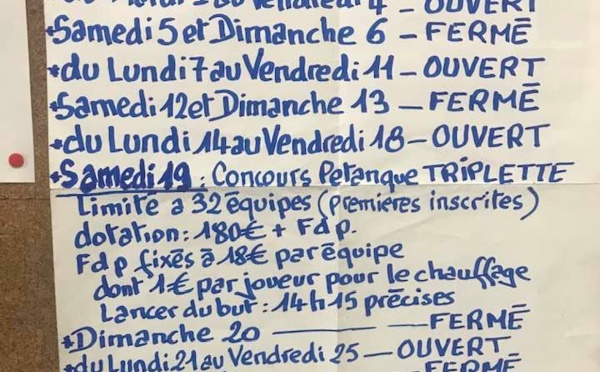 Vendredi 4 - OUVERT
*Samedi 5 et Dimanche 6 - FERMÉ
*du Lundi 7 au Vendredi 11 - OUVERT
*Samedi 12 et Dimanche 13 - FERMÉ
*du Lundi 14 au Vendredi 18 - OUVERT
*Samedi 19 : Concours Petanque TRIPLETTE
Limité a 32 équipes (premières inscrites)
dotation : 180€ + Fdp.
Fdp fixés à 18€ par équipe
dont 1€ par joueur pour le chauffage
Lancer du but : 14h15 précises
*Dimanche 20 — — FERMÉ
*du Lundi 21 au Vendredi 25 — OUVERT
FERMÉ